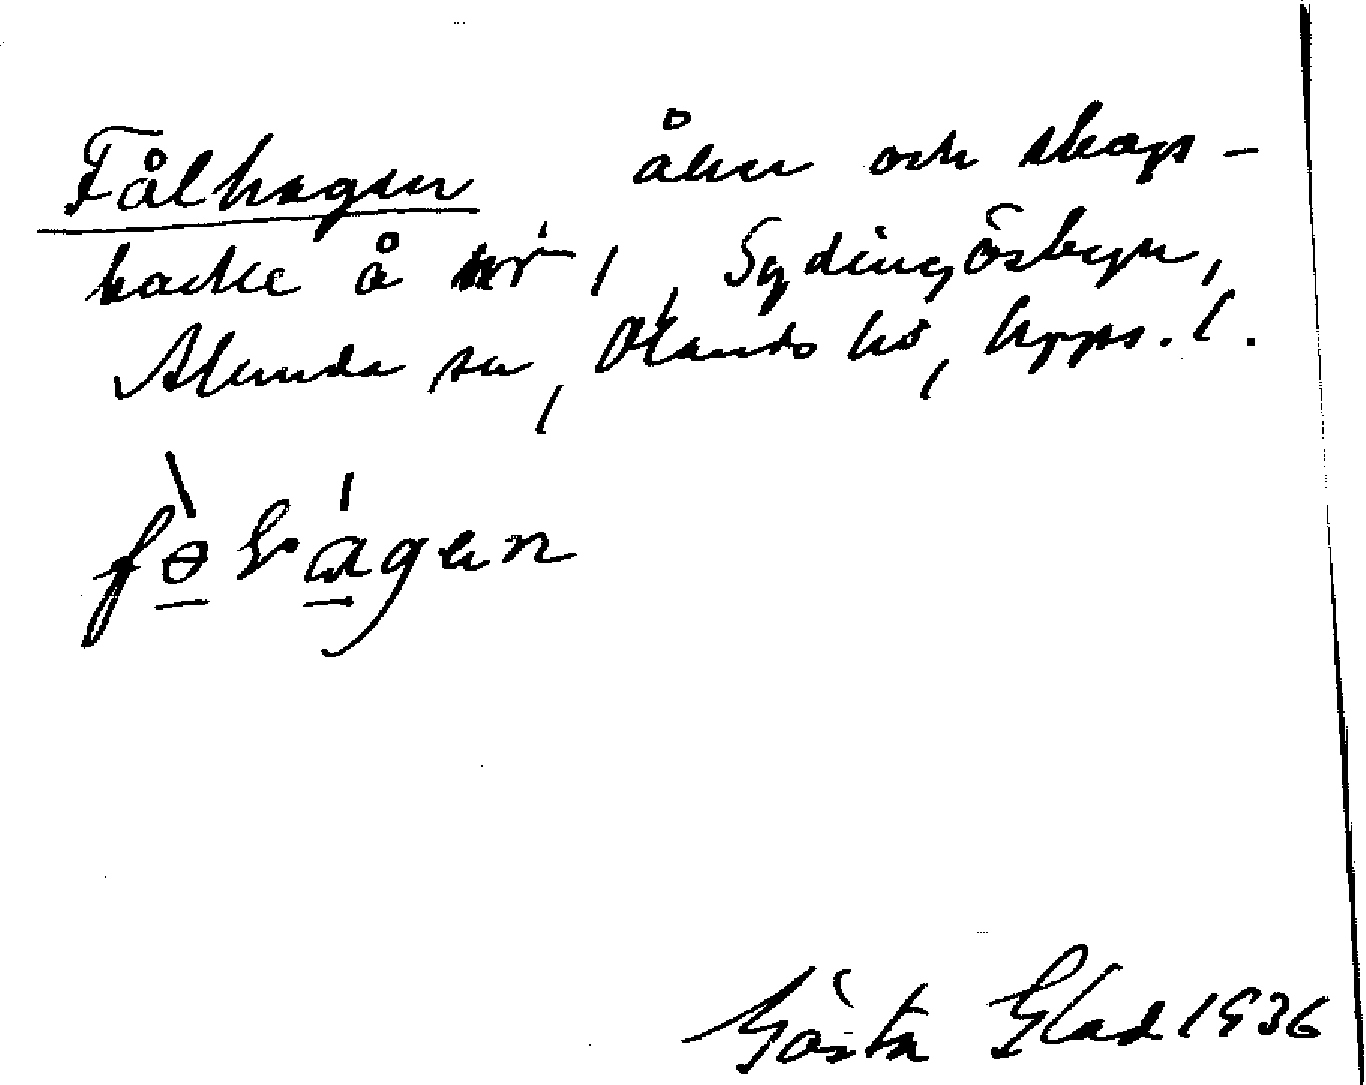 Fålhagen åker och skogs-
backe å nr 1, Sydingösbyn,
Alunda sn, Olands hd, Upps. l.
Gösta Glad 1936